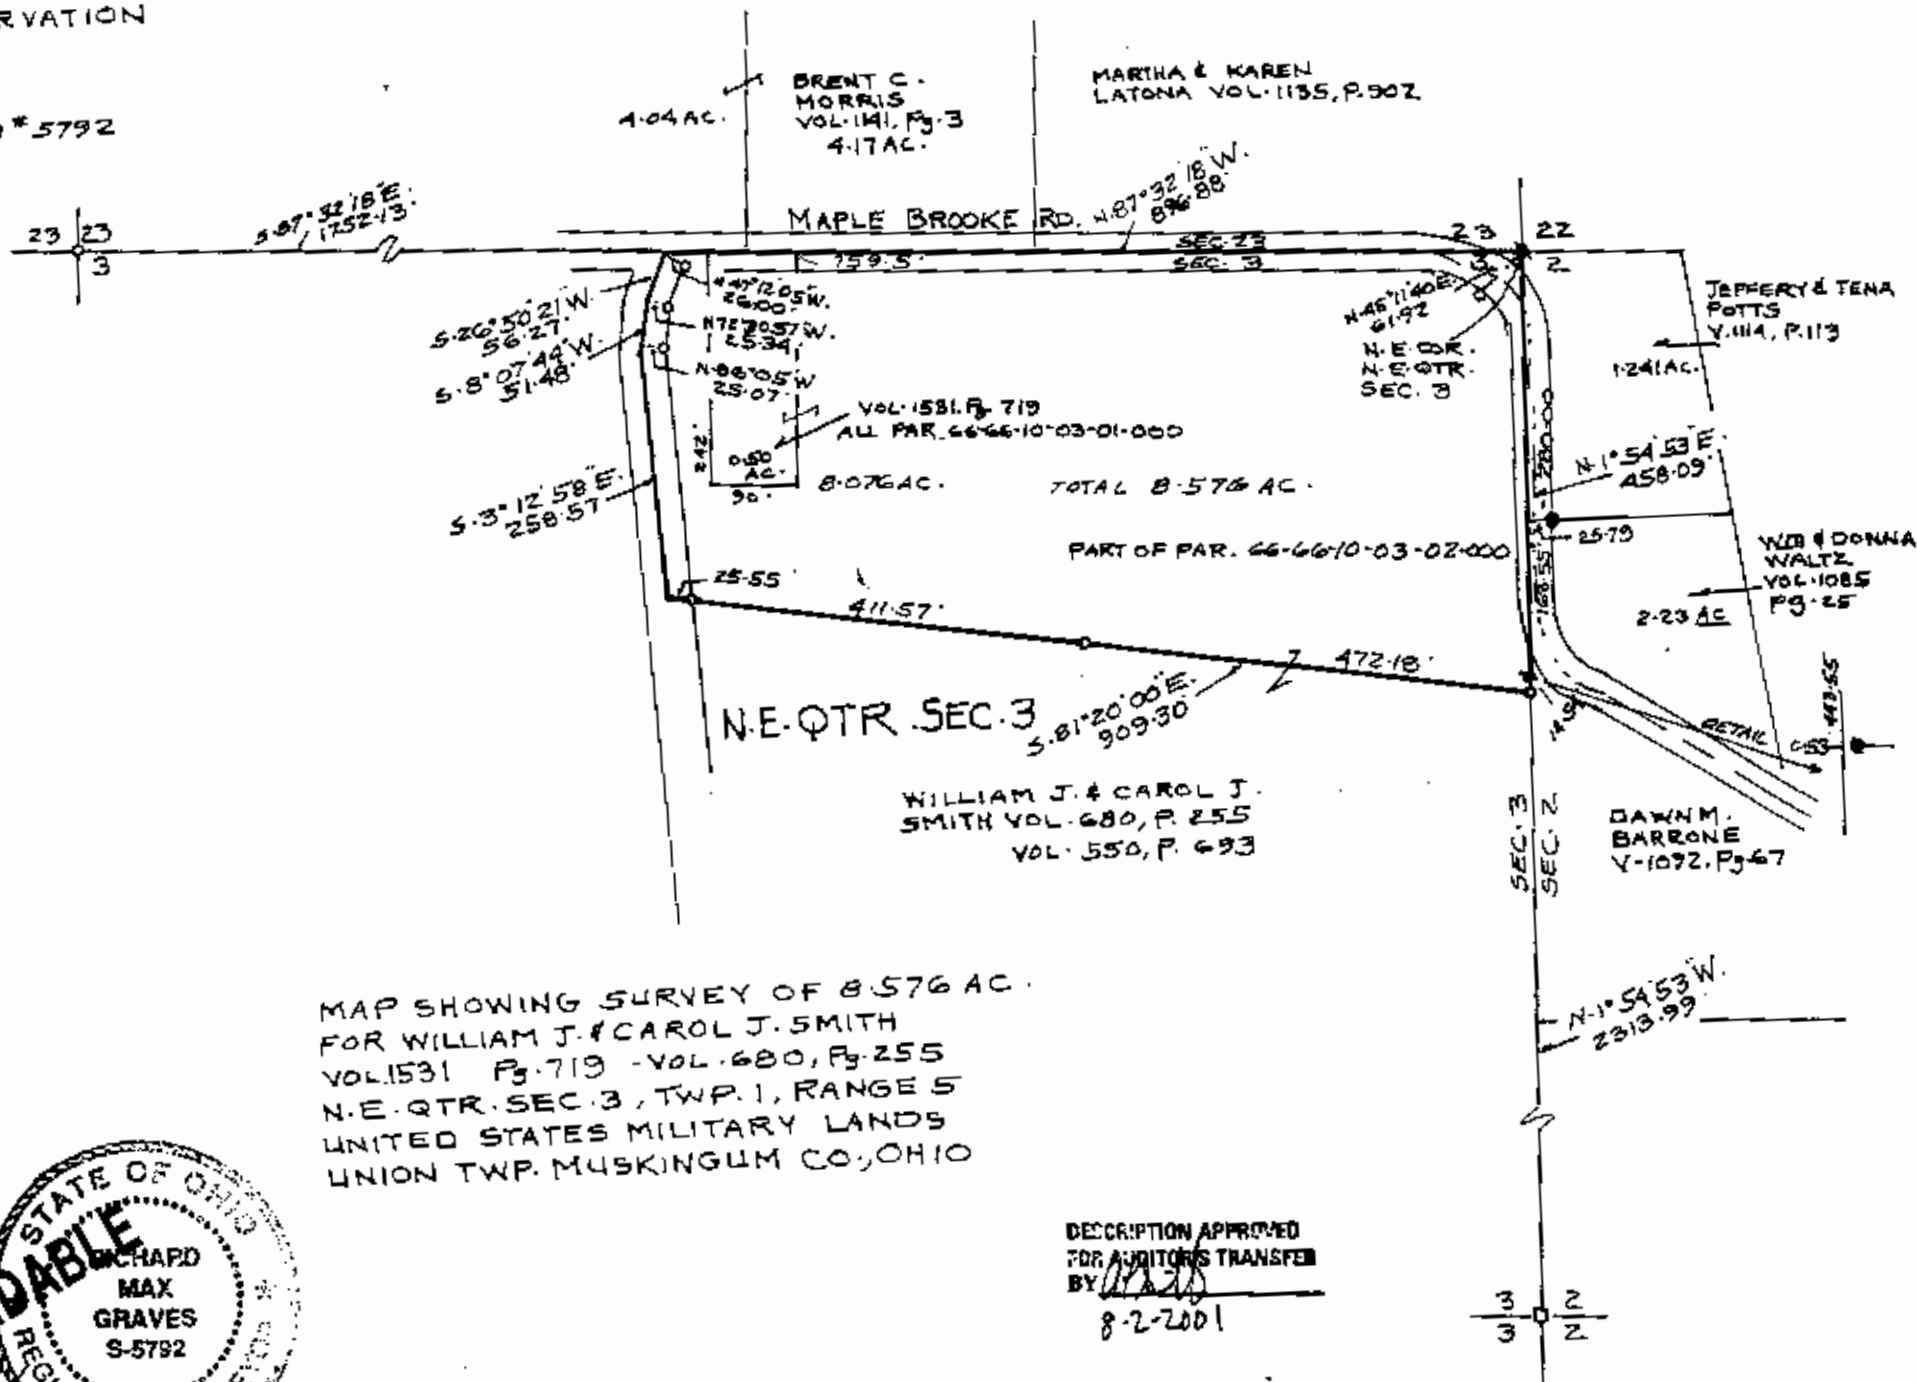 # 5792
BRENT C.
MORRIS
VOL. 1141, Pg. 3
4.17 AC.
4.04 AC.
MARTHA & KAREN
LATONA VOL. 1135, P. 902
23 23
3
S. 87° 32' 18" E.
1752.13'
MAPLE BROOKE RD.
N. 87° 32' 18" W.
896.88'
SEC. 23
SEC. 3
759.5'
23 22
3 2
S. 26° 50' 21" W.
56.27'
S. 8° 07' 44" W.
51.48'
S. 3° 12' 58" E.
258.57'
26.00'
25.34'
25.07'
N. 45° 11' 40" E.
61.92
N. E. COR.
N. E. QTR.
SEC. 3
JEFFERY & TENA
POTTS
V. 1114, P. 113
1.241 AC.
VOL. 1531, Pg. 719
ALL PAR. 66-66-10-03-01-000
242'
0.50
AC.
90'
8.076 AC.
TOTAL 8.576 AC.
PART OF PAR. 66-66-10-03-02-000
280.00
N. 1° 54' 53" E.
458.09'
25.79
& DONNA
WALTZ
VOL. 1085
Pg. 25
2.23 AC
25.55'
411.57'
472.18'
S. 81° 20' 00" E.
909.30'
N.E. QTR. SEC. 3
WILLIAM J. & CAROL J.
SMITH VOL. 680, P. 255
VOL. 550, P. 693
443.55
SEC. 3
SEC. 2
DAWN M.
BARRONE
V-1092, Pg. 67
N. 1° 54' 53" W.
2313.99'
MAP SHOWING SURVEY OF 8.576 AC.
FOR WILLIAM J. & CAROL J. SMITH
VOL. 1531 Pg. 719 - VOL. 680, Pg. 255
N. E. QTR. SEC. 3, TWP. 1, RANGE 5
UNITED STATES MILITARY LANDS
UNION TWP. MUSKINGUM CO., OHIO
STATE OF OHIO
RICHARD
MAX
GRAVES
S-5792
DESCRIPTION APPROVED
FOR AUDITOR'S TRANSFER
BY
8-2-2001
3 2
3 2